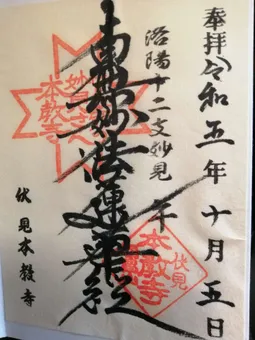 奉拝 令和五年十月五日
洛陽十二支妙見 午
南無妙法蓮華経
伏見本教寺
妙見さん
本教寺
伏見
本教寺